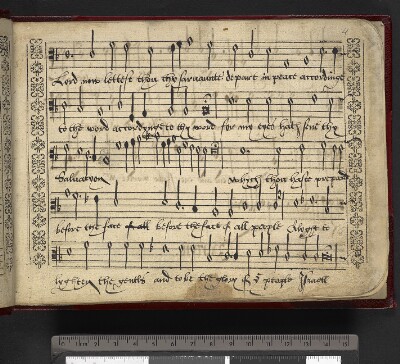 Lord now lettest thou thy servaunte depart in peace accordynge
to the word accordynge to thy word for my eyes hath sene thy
Salvatyon whych thou haste prepared
before the face of all before the face of all people A lyght to
lyghten the gentls and to be the glory of yr people Israell